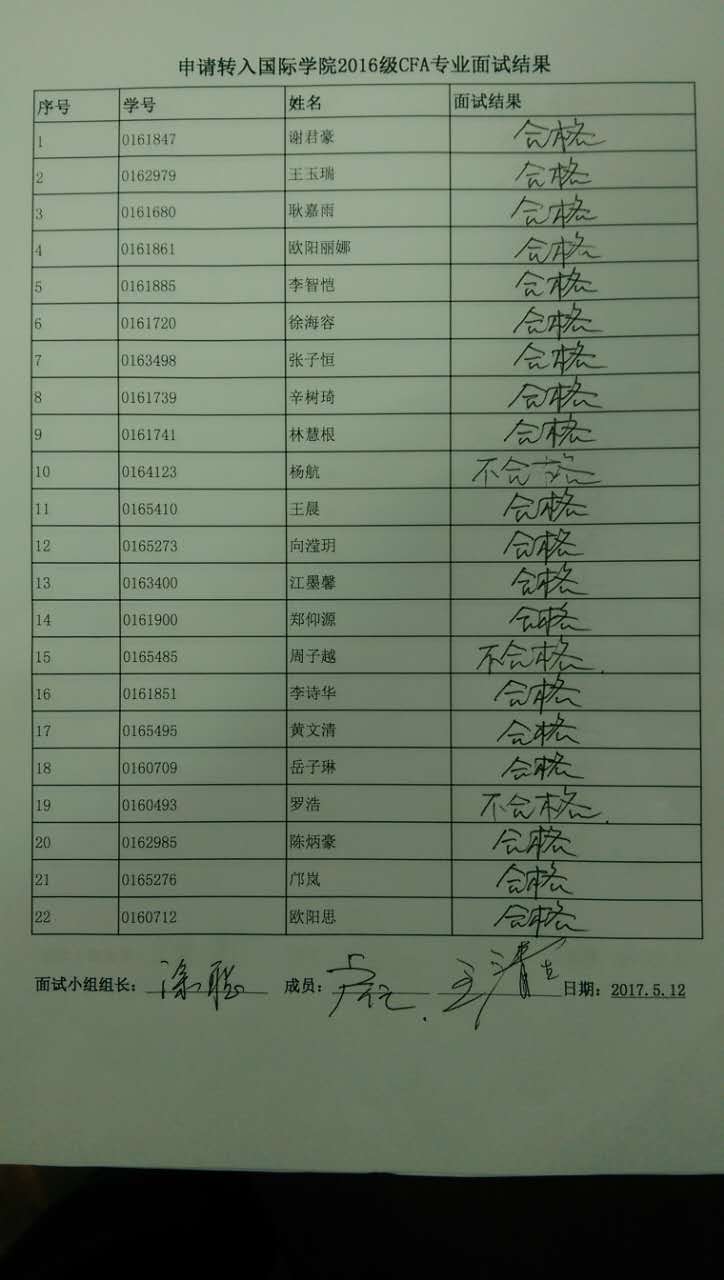 申请转入国际学院2016级CFA专业面试结果
序号 学号 姓名 面试结果
1 0161847 谢君豪 合格
2 0162979 王玉瑞 合格
3 0161680 耿嘉雨 合格
4 0161861 欧阳丽娜 合格
5 0161885 李智恺 合格
6 0161720 徐海容 合格
7 0163498 张子恒 合格
8 0161739 辛树琦 合格
9 0161741 林慧根 合格
10 0164123 杨航 不合格
11 0165410 王晨 合格
12 0165273 向滢玥 合格
13 0163400 江墨馨 合格
14 0161900 郑仰源 合格
15 0165485 周子越 不合格.
16 0161851 李诗华 合格
17 0165495 黄文清 合格
18 0160709 岳子琳 合格
19 0160493 罗浩 不合格.
20 0162985 陈炳豪 合格
21 0165276 邝岚 合格
22 0160712 欧阳思 合格
面试小组组长： 成员： 日期：2017.5.12